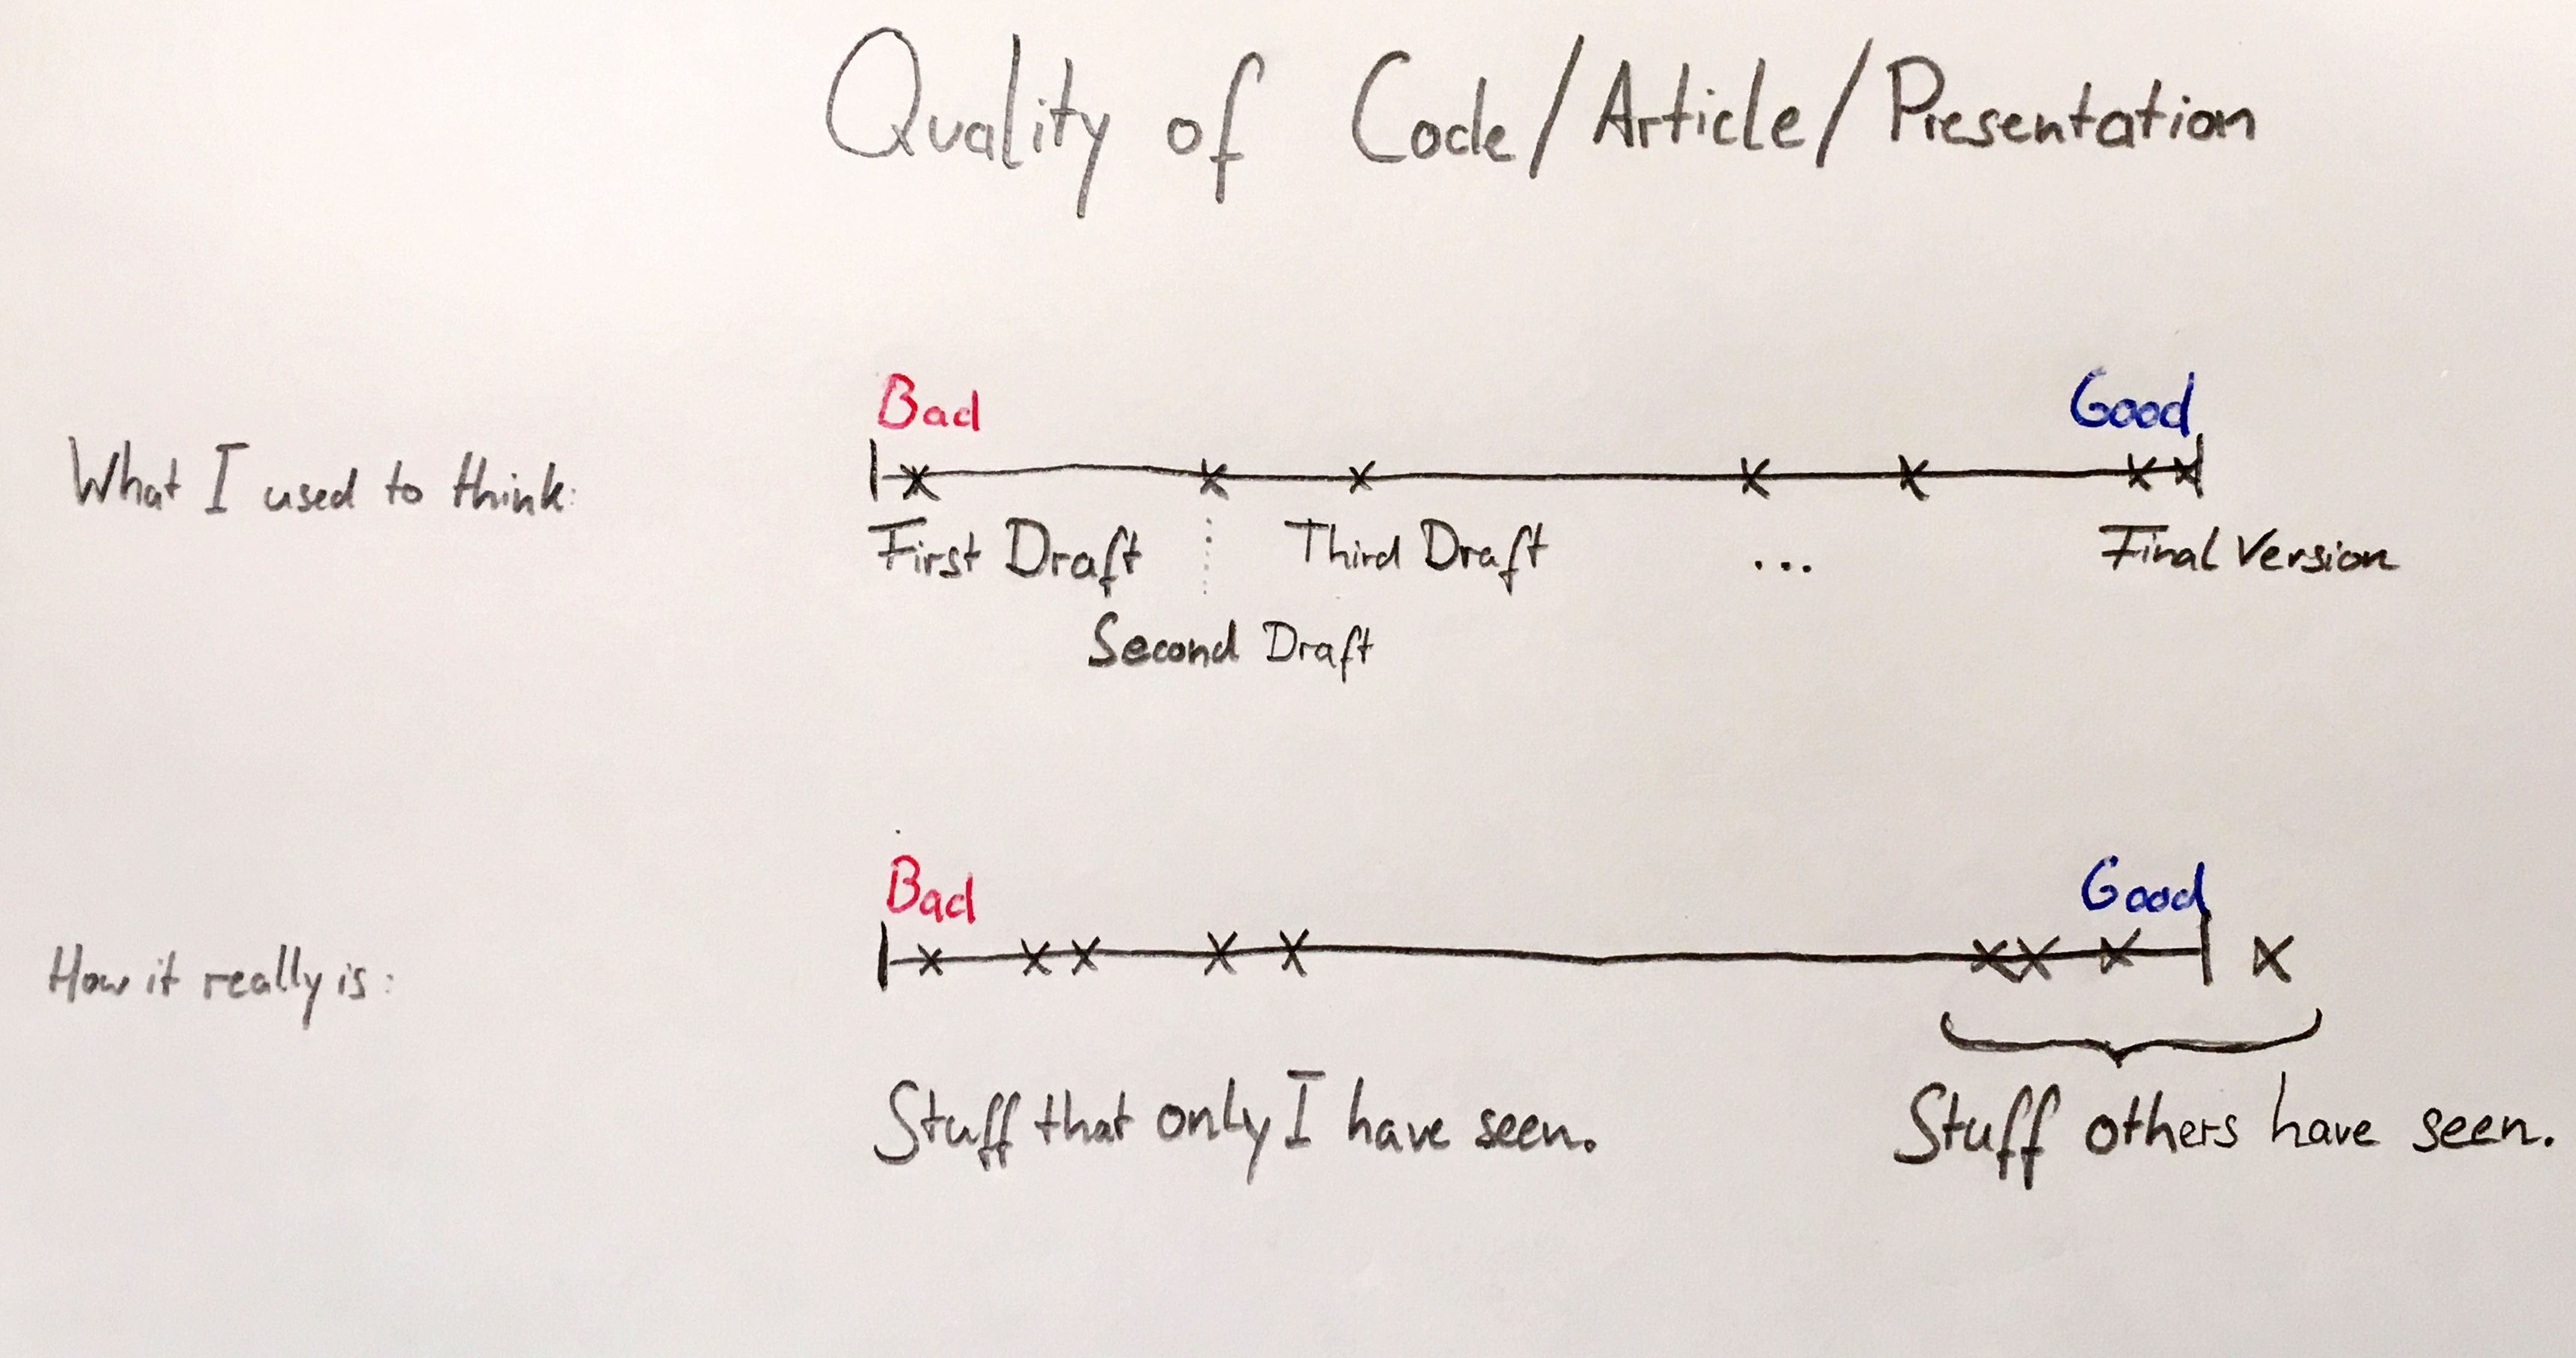 Quality of Code/Article/Presentation
Bad Good
What I used to think:
First Draft Third Draft ... Final Version
Second Draft
Bad Good
How it really is:
Stuff that only I have seen. Stuff others have seen.